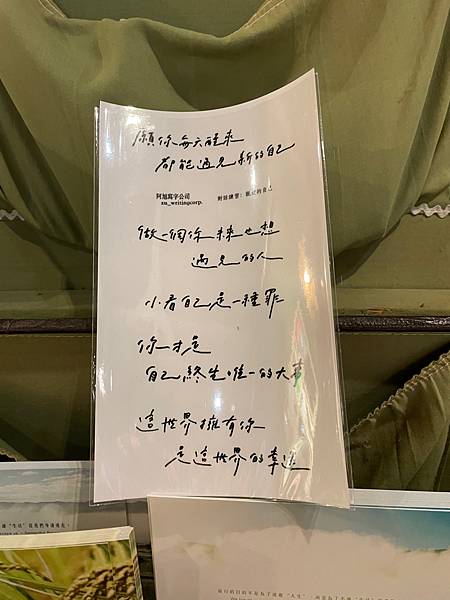 願你每天醒來
都能遇見新的自己
阿旭寫字公司
xu_writingcorp.
對話練習：親近的自己
做一個你未來也想
遇見的人
小看自己是一種罪
你才是
自己終生唯一的大事
這世界擁有你
是這世界的幸運